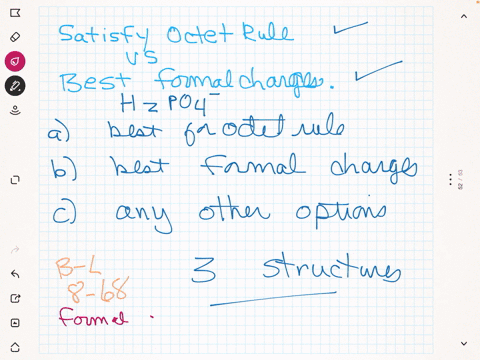 Satisfy Octet Rule
vs
Best formal charges.
H2PO4-
a) best for octet rule
b) best formal charges
c) any other options
B-L 3 structures
8-68
formal .
52 / 53